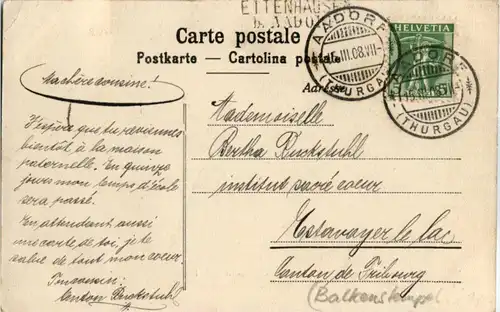 ETTENHAUSEN
b. AADORF
Carte postale
Postkarte — Cartolina postale
Adresse
AADORF
III.08.VII-
(THURGAU)
HELVETIA
5
AADORF
(THURGAU)
Ma chère cousine!
J'espère que tu reviennes
bientôt à la maison
paternelle. En quinze
jours mon temps d'école
sera passé.
En attendant aussi
une carte de toi, je te
salue de tout mon coeur.
Ton cousin:
Anton Ruckstuhl
Mademoiselle
Bertha Ruckstuhl
institut sacré coeur
Estavayer le lac
Canton de Fribourg
(Balkenstempel